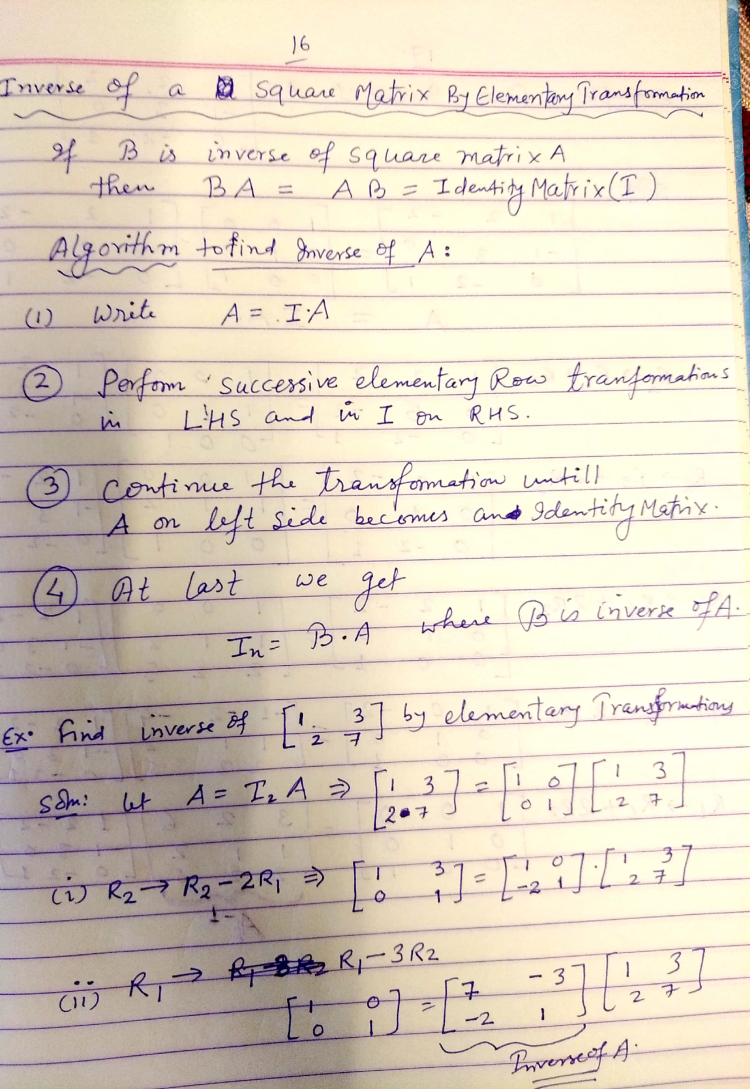 16
Inverse of a Square Matrix By Elementary Transformation
If B is inverse of square matrix A
then BA = AB = Identity Matrix (I)
Algorithm to find Inverse of A:
(1) Write A = I·A
(2) Perform successive elementary Row tranformations
in LHS and in I on RHS.
(3) Continue the transformation untill
A on left side becomes an Identity Matrix.
(4) At last we get
In = B·A where B is inverse of A.
Ex. Find inverse of [1 3; 2 7] by elementary Transformations
Soln: let A = I2 A ⇒ [1 3; 2 7] = [1 0; 0 1] [1 3; 2 7]
(i) R2 → R2 - 2R1 ⇒ [1 3; 0 1] = [1 0; -2 1]·[1 3; 2 7]
(ii) R1 → R1 - 3R2
[1 0; 0 1] = [7 -3; -2 1] [1 3; 2 7]
Inverse of A.